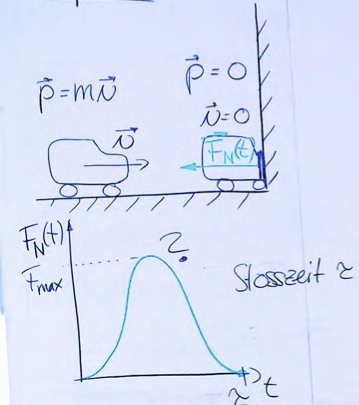 p⃗ = 0
p⃗ = mv⃗
v⃗ = 0
v⃗
F⃗_N(t)
F_N(t)
2.
F_max
Stosszeit τ
τ
t